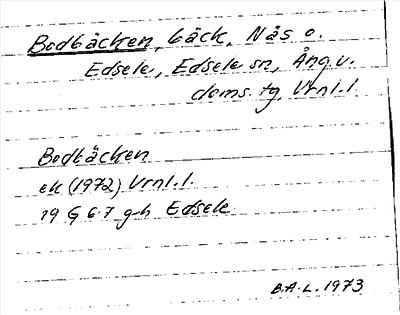 Bodbäcken, bäck, Näs o.
Edsele, Edsele sn, Ång.v.
doms. tg, Vrnl. l.
Bodbäcken
ek (1972) Vrnl. l.
19 G 6-7 g-h Edsele
B.A.L. 1973